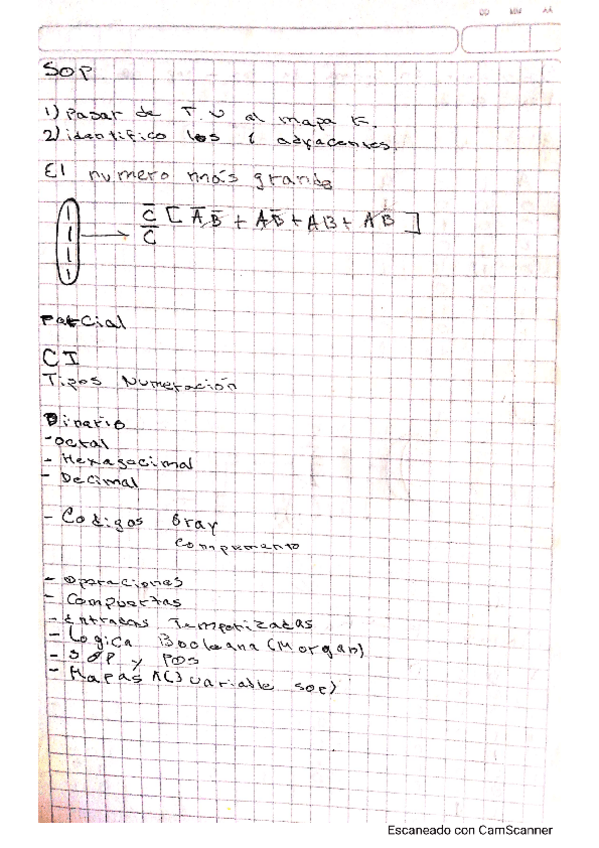 DD MM AA
SOP
1) Pasar de T.V al mapa K.
2) identifico los 1 adyacentes.
El numero más grande
1 1 1 1 → C̅ [A̅B̅ + AB̅ + AB + AB̅]
C̅
Parcial
CI
Tipos Numeración
Binario
- octal
- Hexagecimal
- Decimal
- Codigos Gray
Compemento
- Operaciones
- Compuertas
- Entradas Temporizadas
- Logica Booleana (Morgan)
- SOP y POS
- Mapas K (3 variable sop)
Escaneado con CamScanner